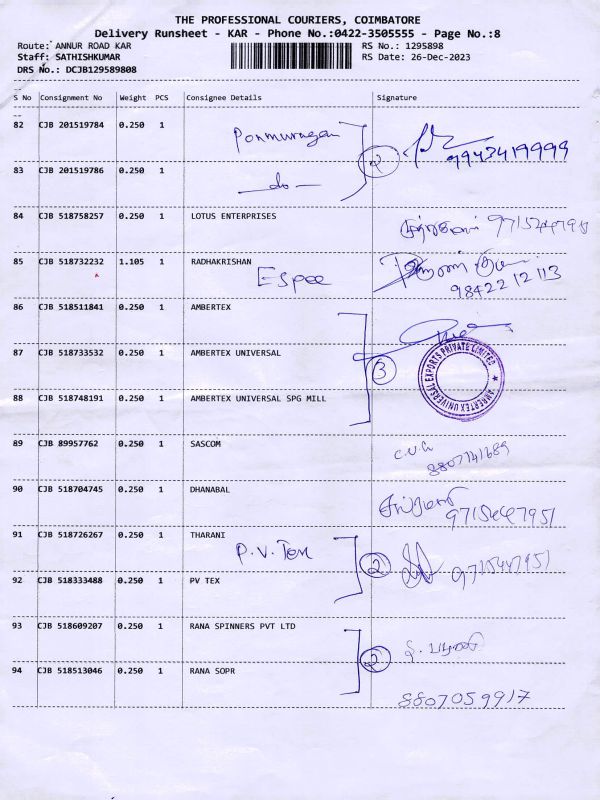 THE PROFESSIONAL COURIERS, COIMBATORE
Delivery Runsheet - KAR - Phone No.:0422-3505555 - Page No.:8
Route: ANNUR ROAD KAR RS No.: 1295898
Staff: SATHISHKUMAR RS Date: 26-Dec-2023
DRS No.: DCJB129589808
S No Consignment No Weight PCS Consignee Details Signature
82 CJB 201519784 0.250 1 Ponmurugan
2 9943419999
83 CJB 201519786 0.250 1 —do—
84 CJB 518758257 0.250 1 LOTUS ENTERPRISES
85 CJB 518732232 1.105 1 RADHAKRISHAN
Espee 98422 12113
86 CJB 518511841 0.250 1 AMBERTEX
87 CJB 518733532 0.250 1 AMBERTEX UNIVERSAL
3 AMBERTEX UNIVERSAL EXPORTS PRIVATE LIMITED
88 CJB 518748191 0.250 1 AMBERTEX UNIVERSAL SPG MILL
89 CJB 89957762 0.250 1 SASCOM
90 CJB 518704745 0.250 1 DHANABAL
9715447951
91 CJB 518726267 0.250 1 THARANI
P.V. Tex 2 9715447951
92 CJB 518333488 0.250 1 PV TEX
93 CJB 518609207 0.250 1 RANA SPINNERS PVT LTD
2
94 CJB 518513046 0.250 1 RANA SOPR
8807059917